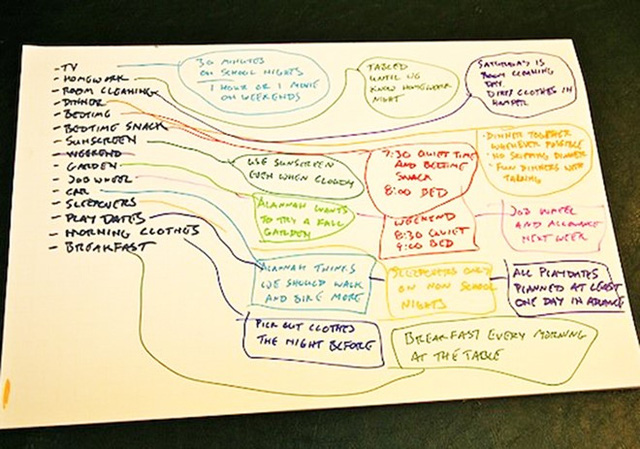 - TV
- HOMEWORK
- ROOM CLEANING
- DINNER
- BEDTIME
- BEDTIME SNACK
- SUNSCREEN
- WEEKEND
- GARDEN
- JOB WHEEL
- CAR
- SLEEPOVERS
- PLAY DATES
- MORNING CLOTHES
- BREAKFAST
30 MINUTES
ON SCHOOL NIGHTS
1 HOUR OR 1 MOVIE
ON WEEKENDS
TABLED
UNTIL WE
KNOW HOMEWORK
NIGHT
SATURDAY IS
ROOM CLEANING
DAY
DIRTY CLOTHES IN
HAMPER
USE SUNSCREEN
EVEN WHEN CLOUDY
7:30 QUIET TIME
AND BEDTIME
SNACK
8:00 BED
• DINNER TOGETHER
WHENEVER POSSIBLE
• NO SKIPPING DINNER
• FUN DINNERS WITH
TALKING
ALANNAH WANTS
TO TRY A FALL
GARDEN
WEEKEND
8:30 QUIET
9:00 BED
JOB WHEEL
AND ALLOWANCE
NEXT WEEK
ALANNAH THINGS
WE SHOULD WALK
AND BIKE MORE
SLEEPOVERS ONLY
ON NON SCHOOL
NIGHTS
ALL PLAYDATES
PLANNED AT LEAST
ONE DAY IN ADVANCE
PICK OUT CLOTHES
THE NIGHT BEFORE
BREAKFAST EVERY MORNING
AT THE TABLE